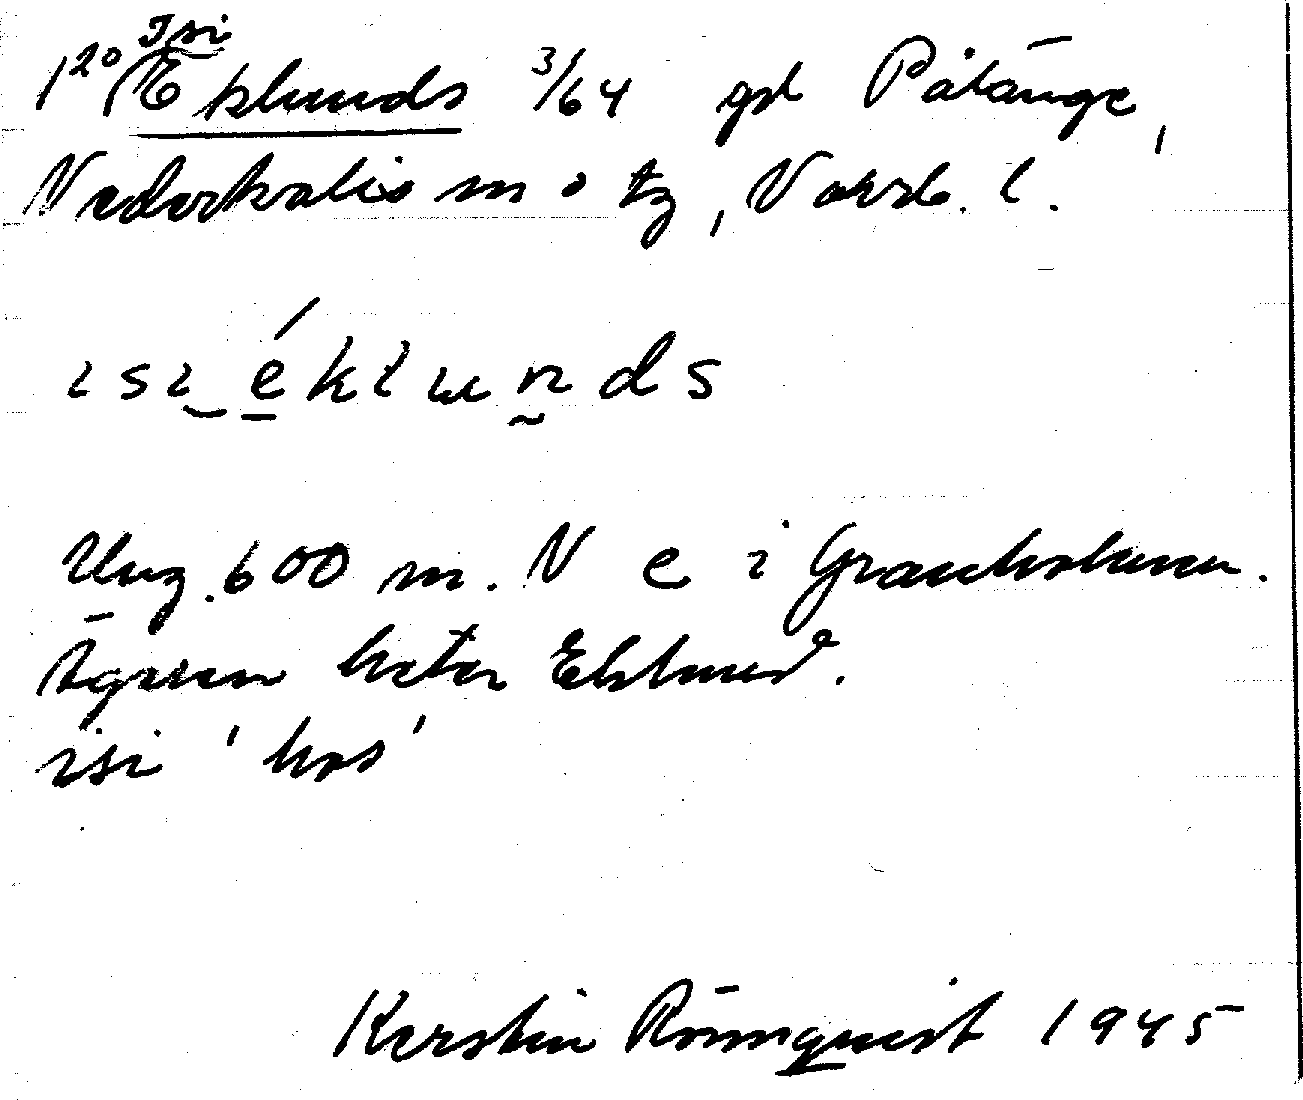 Isi
1²⁰ Eklunds 3/64 gd Påtånge,
Nederkalix sn o tg, Norrb. l.
isi ‿ éklun̰ds
Ung. 600 m. N e i Grankolmen.
Ägaren heter Eklund.
isi 'hos'
Kerstin Rönnquist 1945